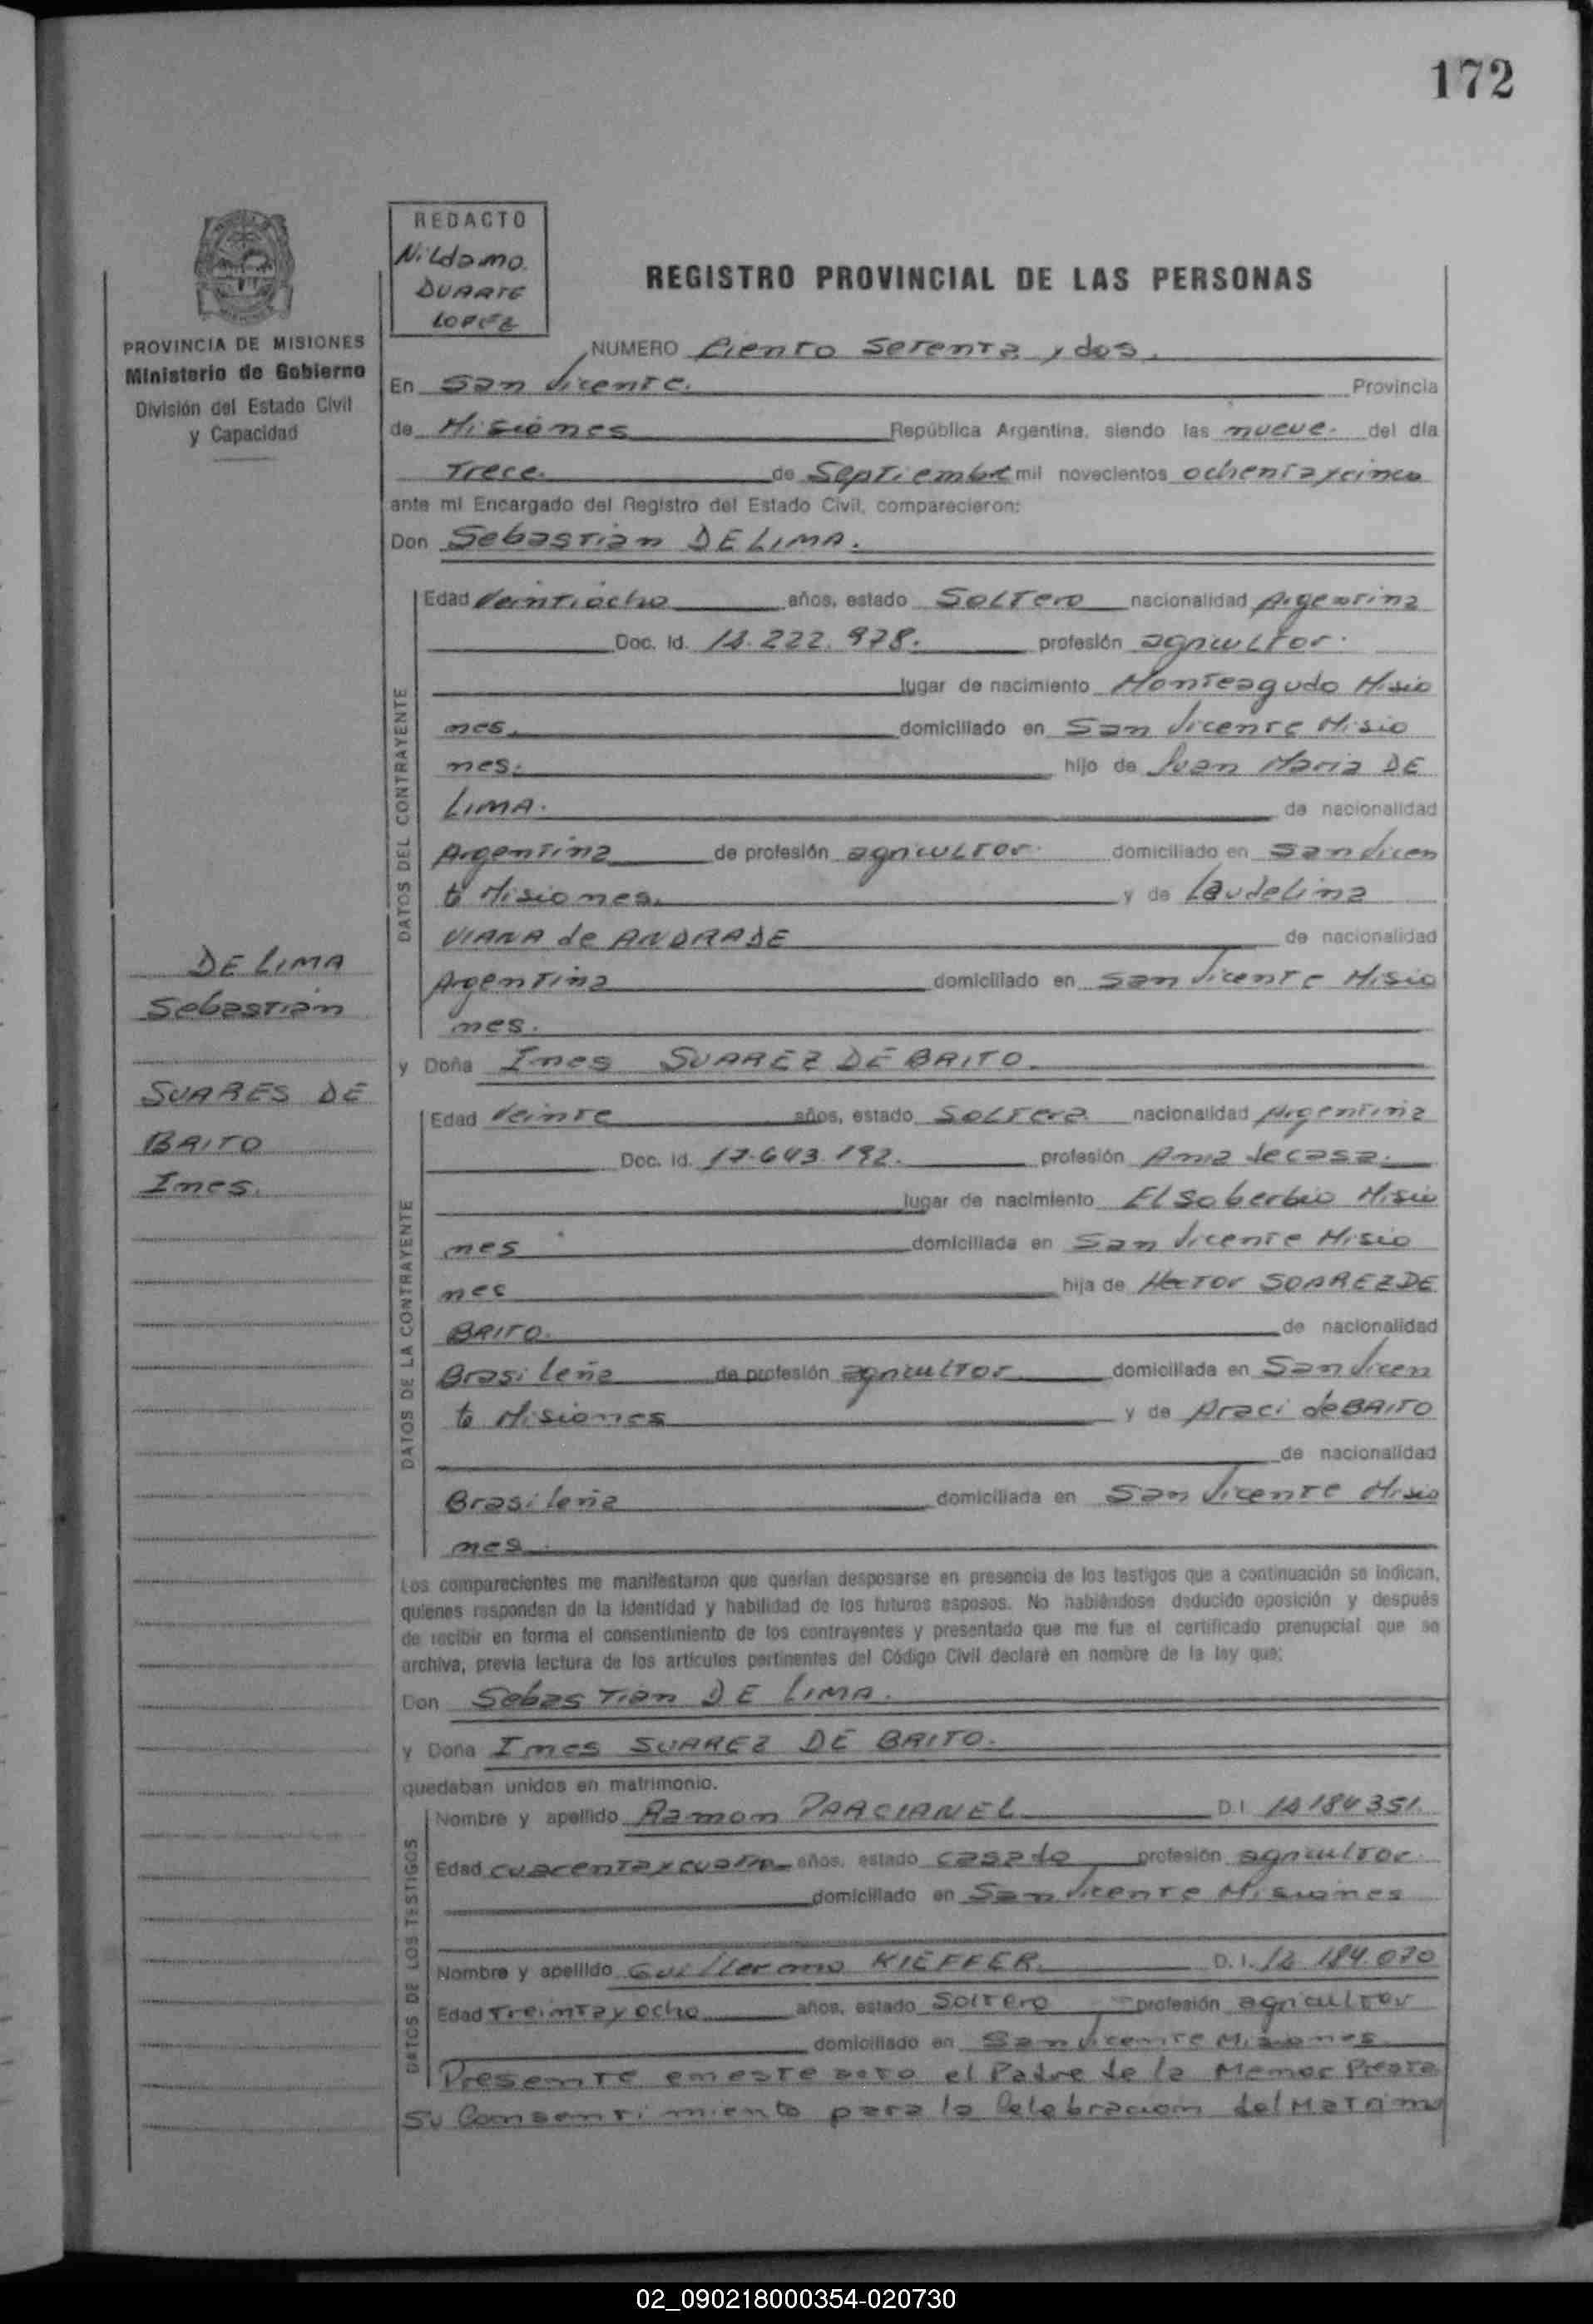 172
REDACTO
Nildamo.
DUARTE
LOPEZ
REGISTRO PROVINCIAL DE LAS PERSONAS
PROVINCIA DE MISIONES
Ministerio de Gobierno
División del Estado Civil
y Capacidad
NUMERO Ciento Setenta y dos.
En San Vicente. Provincia
de Misiones República Argentina, siendo las nueve. del día
Trece. de Septiembre mil novecientos ochenta y cinco
ante mi Encargado del Registro del Estado Civil, comparecieron:
Don Sebastián DE LIMA.
DATOS DEL CONTRAYENTE
Edad Veintiocho años, estado Soltero nacionalidad Argentina
Doc. Id. profesión agricultor.
lugar de nacimiento Monteagudo Misio
nes. domiciliado en San Vicente Misio
nes. hijo de Juan Maria DE
LIMA. de nacionalidad
Argentina de profesión agricultor. domiciliado en San Vicen
te Misiones. y de Laudelina
VIANA de ANDRADE de nacionalidad
Argentina domiciliado en San Vicente Misio
nes.
DE LIMA
Sebastián
SUARES DE
BRITO
Ines.
y Doña Ines SUAREZ DE BRITO.
DATOS DE LA CONTRAYENTE
Edad Veinte años, estado Soltera nacionalidad Argentina
Doc. Id. 17.643.192. profesión Ama de casa.
lugar de nacimiento El Soberbio Misio
nes domiciliada en San Vicente Misio
nes hija de Hector SOAREZ DE
BRITO. de nacionalidad
Brasileña de profesión agricultor domiciliada en San Vicen
te Misiones y de Araci de BRITO
de nacionalidad
Brasileña domiciliada en San Vicente Misio
nes.
Los comparecientes me manifestaron que querían desposarse en presencia de los testigos que a continuación se indican,
quienes responden de la identidad y habilidad de los futuros esposos. No habiéndose deducido oposición y después
de recibir en forma el consentimiento de los contrayentes y presentado que me fue el certificado prenupcial que se
archiva, previa lectura de los artículos pertinentes del Código Civil declaré en nombre de la ley que:
Don Sebastian DE LIMA.
y Doña Ines SUAREZ DE BRITO.
quedaban unidos en matrimonio.
DATOS DE LOS TESTIGOS
Nombre y apellido Ramon PARCIANEL D.I.
Edad cuarenta y cuatro años, estado casado profesión agricultor
domiciliado en San Vicente Misiones
Nombre y apellido Guillermo KIEFFER. D.I.
Edad Treinta y ocho años, estado Soltero profesión agricultor
domiciliado en San Vicente Misiones
Presente en este acto el Padre de la Menor Presta
Su Consentimiento para la Celebración del Matrimo
02_090218000354-020730